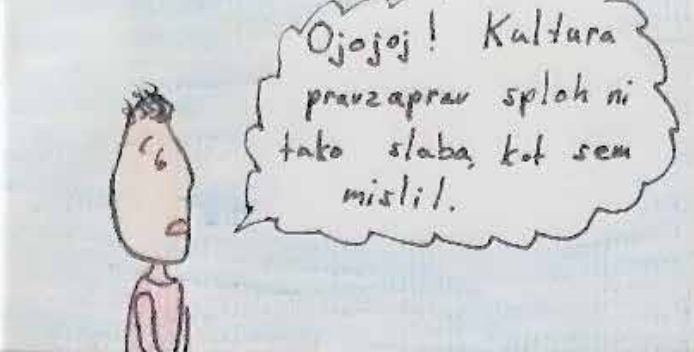 Ojojoj! Kultura
pravzaprav sploh ni
tako slaba, kot sem
mislil.